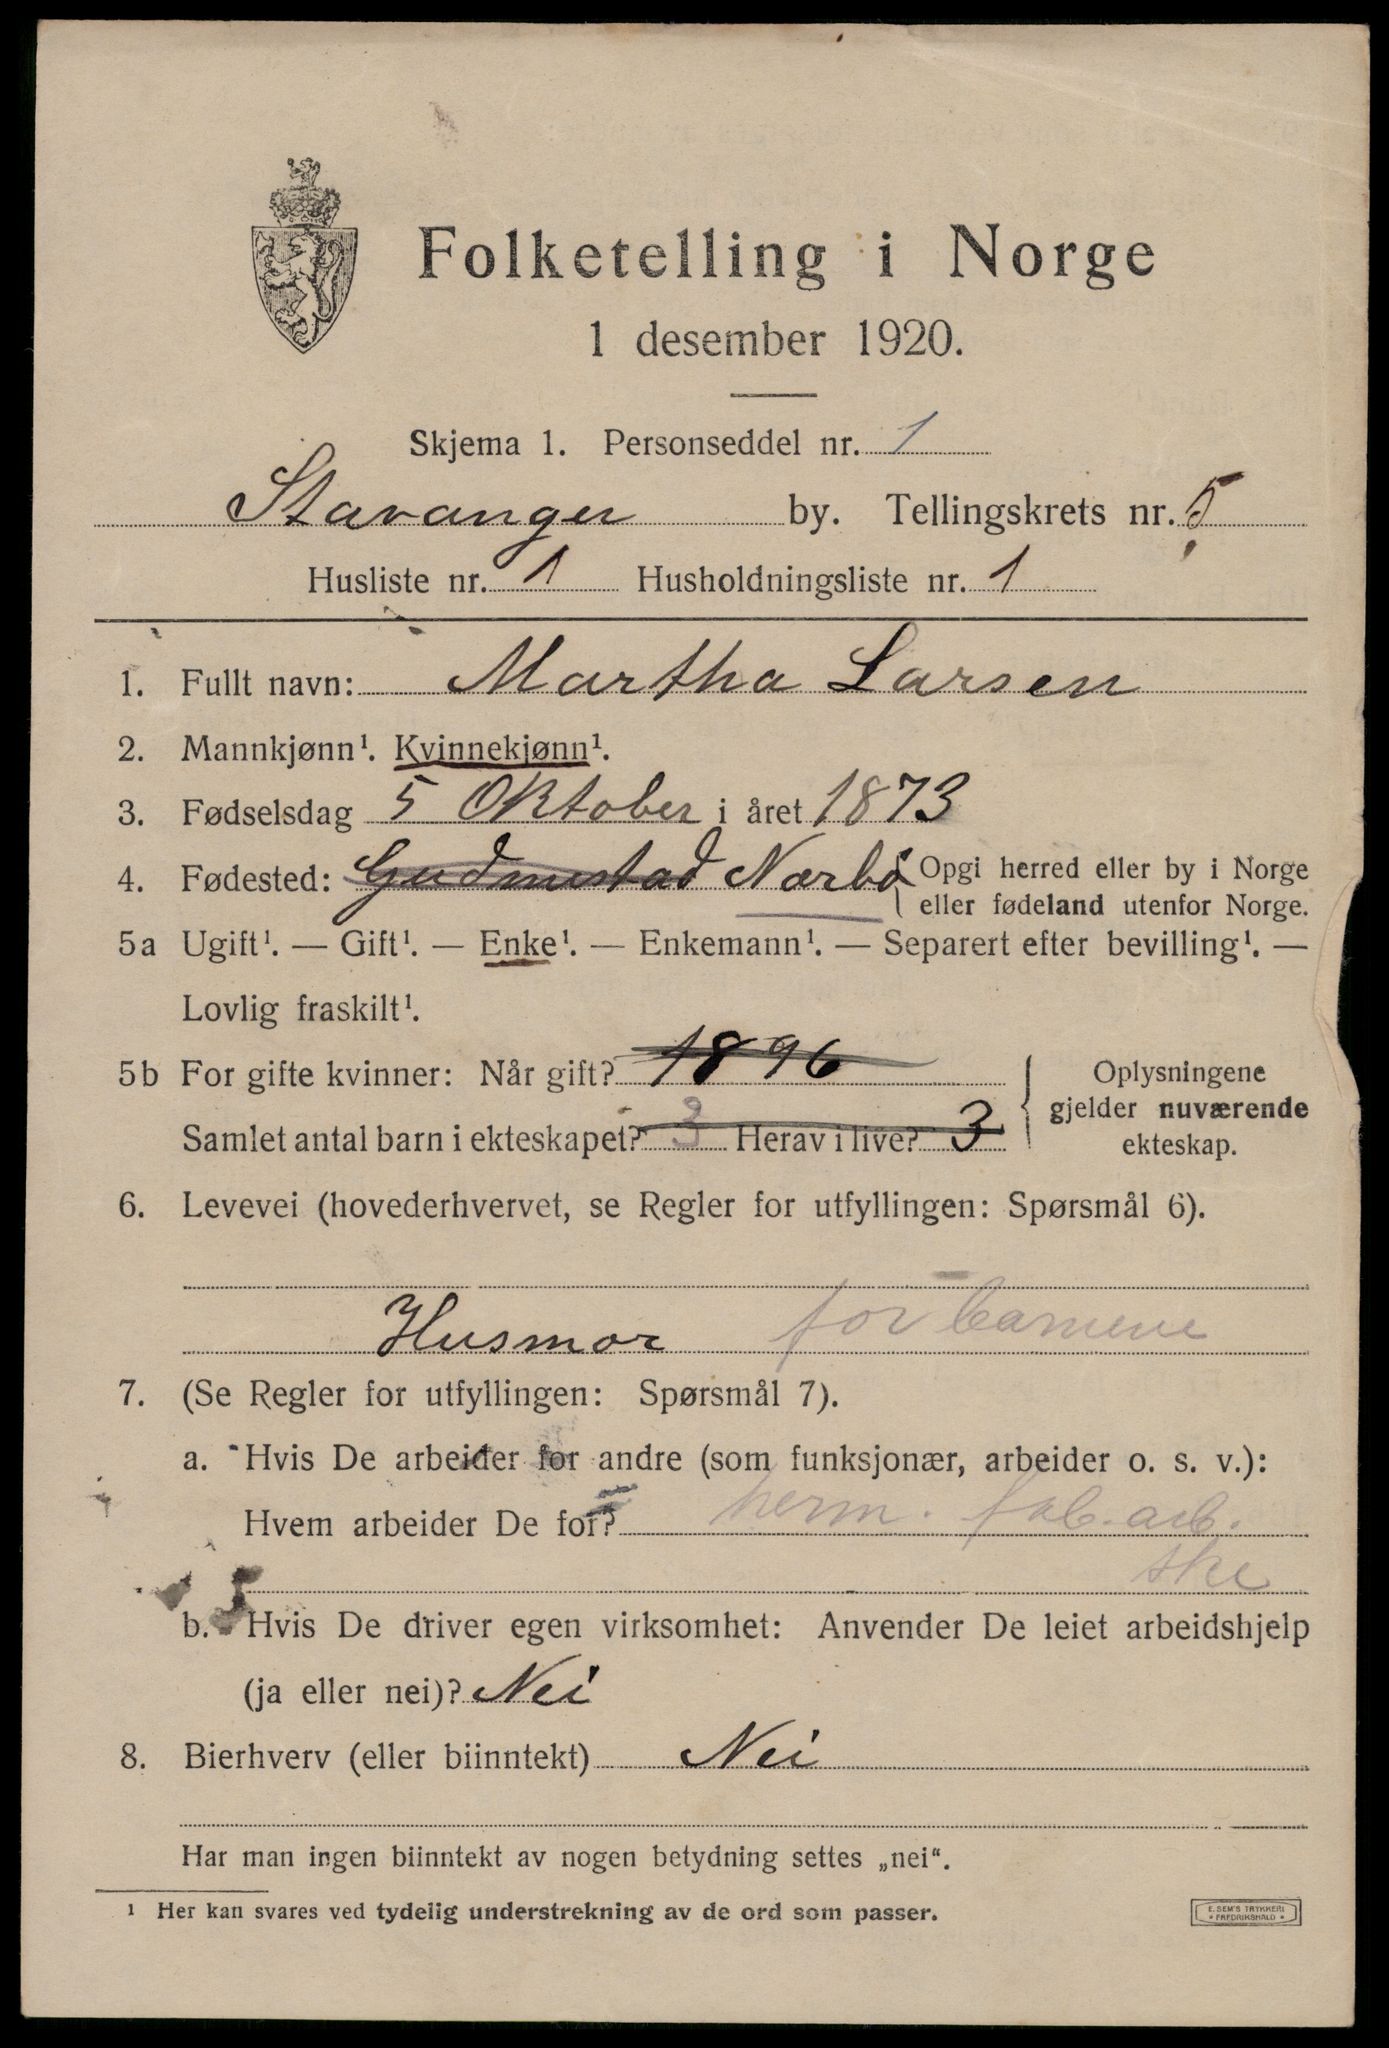 Folketelling i Norge
1 desember 1920.
Skjema 1. Personseddel nr. 1
Stavanger by. Tellingskrets nr. 5
Husliste nr. 1 Husholdningsliste nr. 1
1. Fullt navn: Martha Larsen
2. Mannkjønn¹. Kvinnekjønn¹.
3. Fødselsdag 5 Oktober i året 1873
4. Fødested: Gudmestad Nærbø { Opgi herred eller by i Norge
eller fødeland utenfor Norge.
5a Ugift¹. — Gift¹. — Enke¹. — Enkemann¹. — Separert efter bevilling¹. —
Lovlig fraskilt¹.
5b For gifte kvinner: Når gift? 1896
Samlet antal barn i ekteskapet? 3 Herav i live? 3
{ Oplysningene
gjelder nuværende
ekteskap.
6. Levevei (hovederhvervet, se Regler for utfyllingen: Spørsmål 6).
Husmor for barnene
7. (Se Regler for utfyllingen: Spørsmål 7).
a. Hvis De arbeider for andre (som funksjonær, arbeider o. s. v.):
Hvem arbeider De for? herm. fab. arb.
ske
b. Hvis De driver egen virksomhet: Anvender De leiet arbeidshjelp
(ja eller nei)? Nei
8. Bierhverv (eller biinntekt) Nei
Har man ingen biinntekt av nogen betydning settes „nei“.
¹ Her kan svares ved tydelig understrekning av de ord som passer.
E. SEM'S TRYKKERI
* FREDRIKSHALD *